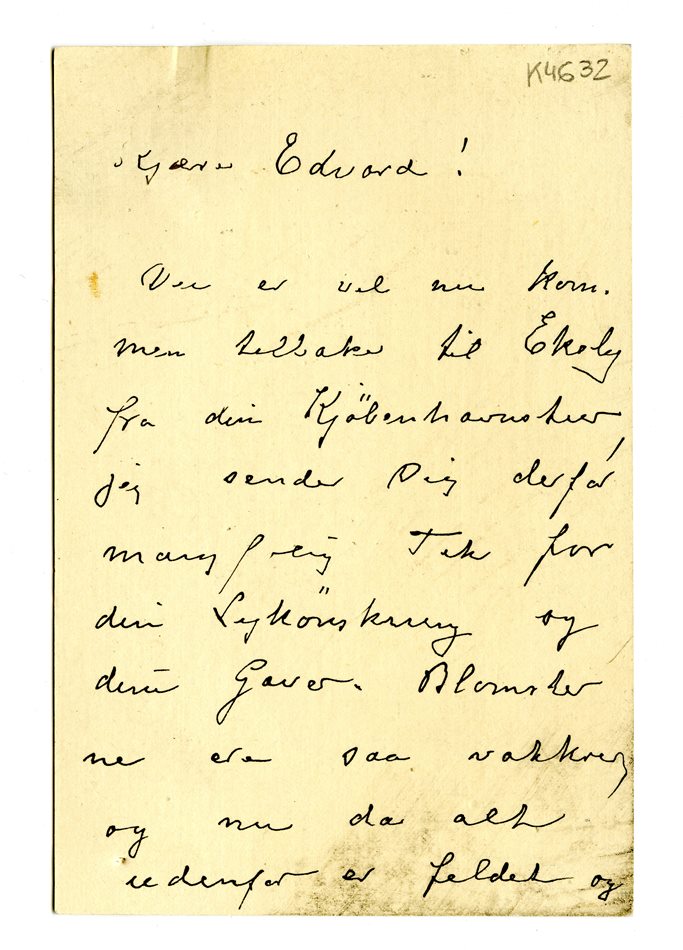 K4632
Kjære Edvard!
Du er vel nu kom-
men tilbake til Ekely
fra din Kjöbenhavnstur,
jeg sender Dig derfor
mangfoldig Tak for
din Lykönskning og
dine Gaver. Blomster
ne ere saa vakkre,
og nu da alt
udenfor er feldet og